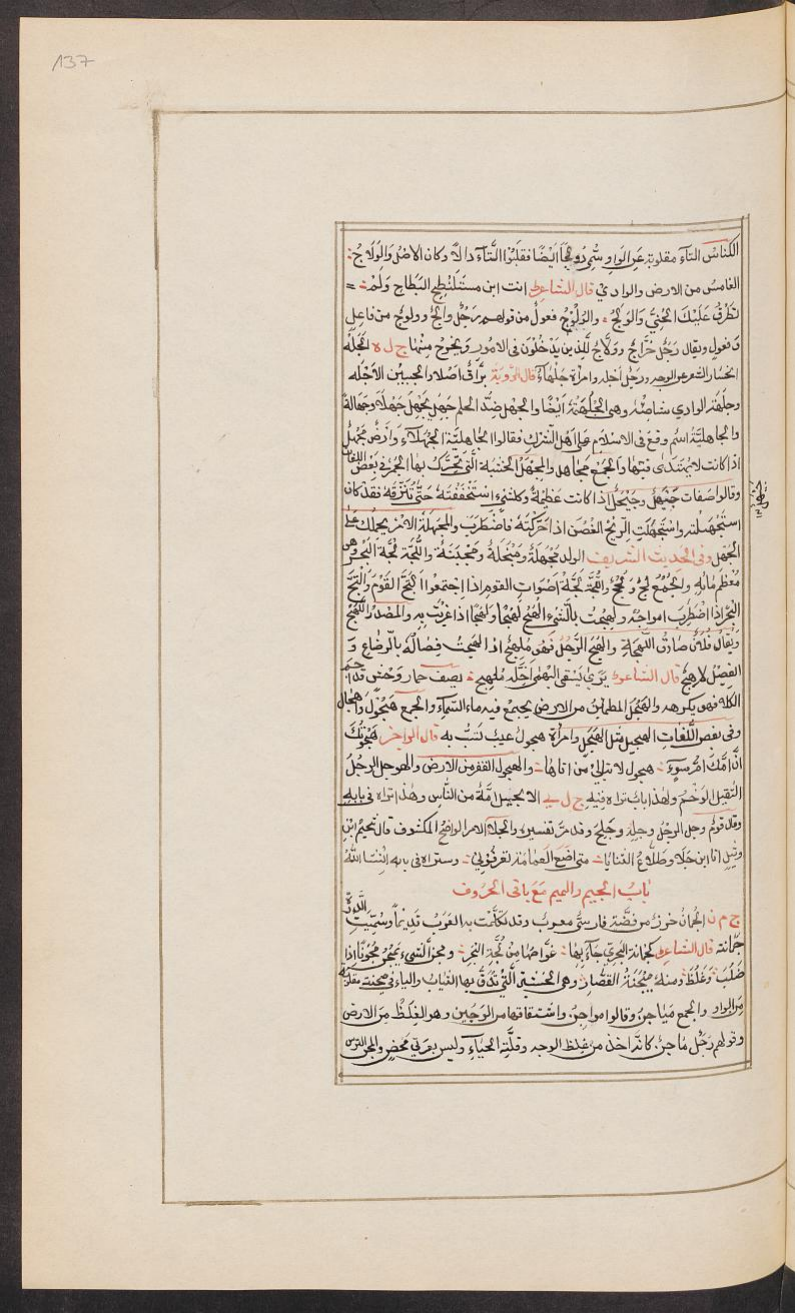 137
الكناسُ التآء مقلوبة عَن الواوِ وسُمّي دَولجًا ايضًا فقلبُوا التَّآءَ دالاً وكان الاصْلُ وَالوِلَاجُ
الغامضُ من الارض والوادي قال الشاعر انت ابن مسلنطح البطاح ولم
تطرق عَلَيكَ الحُنِيُّ وَالوُلُجُ والوُلُوجُ فعولٌ من قولهم رَجُلٌ والجٌ وولوجٌ من فاعل
وفعول ويقال رَجُل خرّاجٌ وولَّاجٌ للّذين يدخُلُون في الامُور ويخرُج مِنْها ج ل ه الجَلَه
انحسار الشعر عن الوجه ورَجُل اَجلَه وامرأة جَلْهَاءُ قال رؤبة برّاق اصْلاد الجبين الاجْلَه
وجلهَة الوادي شاطئه وهي الجَلْهَة ايضًا والجهْل ضِدُّ الحلم جَهِلَ يَجْهَل جَهلاً وجَهالةً
والجاهليَّة اسْم وقعَ في الاسلام على اَهْل الشّرك فقالوا الجَاهليَّة الجَهْلَاء وَاَرْضٌ مَجْهَلٌ
اذا كانت لا يُهْتَدَى فيها والجمْعُ مَجاهل والمِجْهَلُ الخشبَة الَّتي يُحرَّك بها الجمر في بعض اللغات
وقالوا صَفَاة جَيْهَلٌ وجَيْحَلٌ اذا كانت عظيمَة وكلّ شيء استخفَفْتَهُ حَتّى تُنزِقَه فقد كان
استجهَلته واستجْهَلَت الرّيحُ الغُصْن اذا حَرّكتْهُ فاضْطَرَب والمجهَلَة الامر يحملك على
الجَهْل وفي الحديث الشريف الولد مَجْهَلَةٌ ومَبْخَلَةٌ ومَجْبَنَةٌ واللُّجَّة لُجَّة البَحْر وهي
مُعْظم مائِه والجَمْع لُجٌّ ولُجَجٌ واللَّجَّة لَجَّة اَصْوَاتِ القومِ اذا اجتمعُوا اَلتَجَّ القَوْمُ والتجَّ
البحْر اذا اضْطَرب امواجُه ولَهِجْتُ بالشَّيء اَلْهَجُ لَهَجًا ولَهْجًا اذا غَرِيتَ به والمصدَر اللَّهَجُ
ويُقال فُلَانٌ صَادقُ اللَّهجَة والهجَ الرَّجُل فهو مُلهِجٌ اذا لهجَتْ فِصَالُهُ بالرّضاع و
الفصِيل لاهجٌ قال الشاعر يَرْعى بَسْقى البُهمى اَخَلَّه مُلهِج يصف حمار وَحْش قداجم
الكلاء فهو يكرهه والهَجْل المطمئن من الارض يجتمع فيه ماء السَّمَاء والجمع هُجُول وَاهجال
وفي بعض اللُّغات الهَجيل مثل الهَجْل وامرأة هجول عيب تُسَبُّ به قال الراجز هَجوتُكَ
انَّ اُمَّكَ امُّ سوءٍ هجول لا تبالي من اتاهَا والهجول القفر من الارض والهوجل الرجُل
الثقيل الوَخمُ ولهذا بابٌ تراه فيه ج ل ى الا الجيل امّة من النّاس وهٰذا تراه في بابه
وقال قومٌ وجل الرّجُل وجلد وجَلَحَ وقد مَرَّ تفسيره والجلا الامر الواضح المكشوف قال سُحَيم ابن
وثيلٍ انا ابن جَلا وطلَّاعُ الثنايَا متى اضَع العِمَامَة تعرفُوني وستراه في بابه ان شا اللهُ
بابُ الجيم والميم مَعَ باقي الحرُوف
ج م ن الجُمان خرزٌ من فضّة فارسيٌّ معرب وقد تكلّمت به العَرَبُ قَديمًا وسُمّيت الدُّرَّة
جُمانة قال الشاعر كجُمانة البحريّ جَاءَ بها غوّاصُهَا مِنْ لُجَّةِ البَحْر ومَجَن الشيء يَمجُنُ مُجُونًا اذا
صَلُبَ وغَلُظَ ومنه مِيجَنَةُ القصّار وهي الخشبة الَّتي تدقّ بها الثياب والياء في ميجنة مقلوبة
من الواو والجمع مَياجن وقالوا مواجن واشتقاقها من الوَجين وهو الغِلَظُ مِنَ الارضِ
وقولهم رَجُل مَاجن كانَّه اخذ من غلظ الوجه وقلَّة الحيَاءِ وليس بعربي مَحْضٍ والمِجَنّ الترس